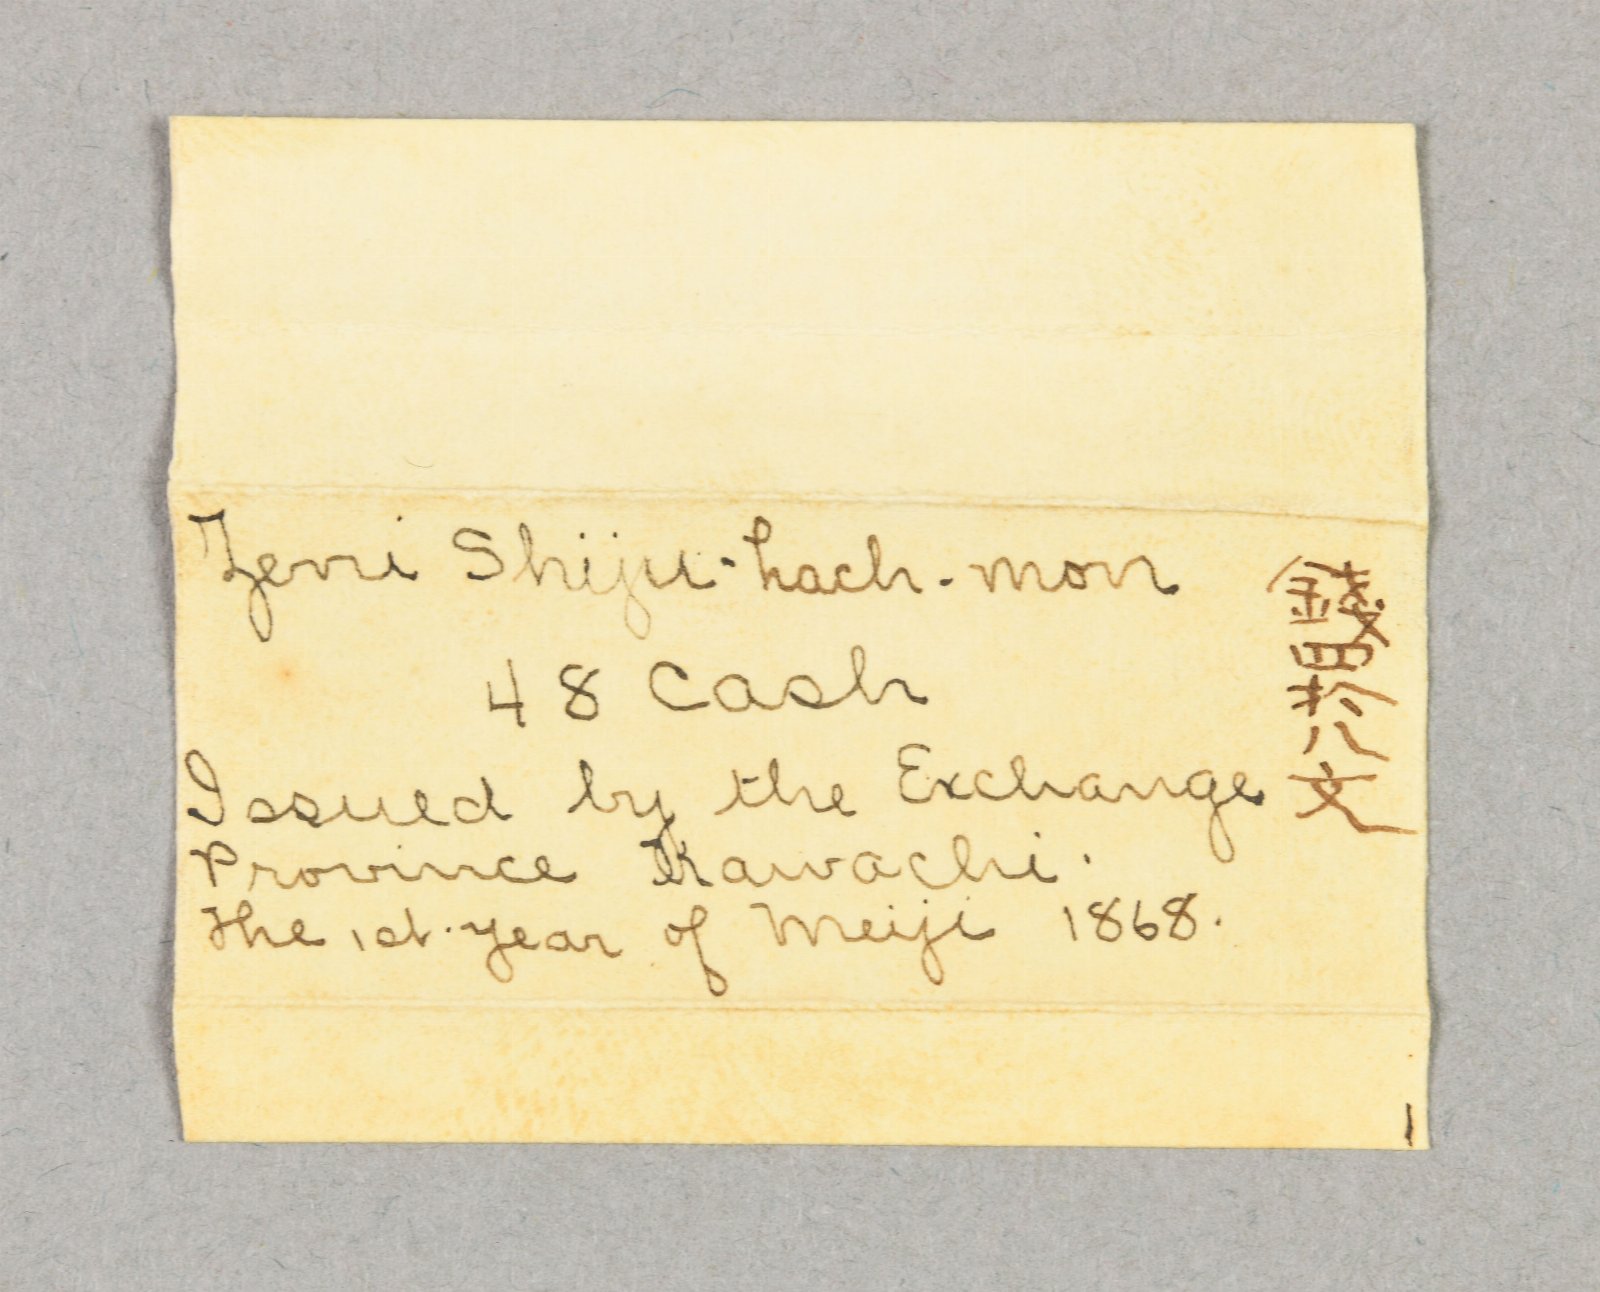 Zeni Shiju-hach-mon
48 Cash
Issued by the Exchange
Province Kawachi.
The 1st. year of Meiji 1868.
錢四拾八文
1